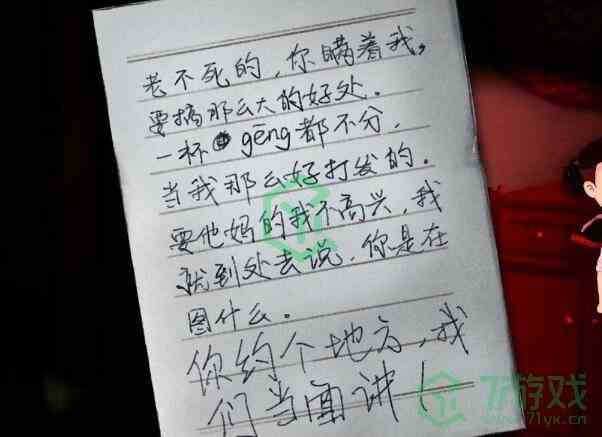 老不死的，你瞒着我，
要搞那么大的好处.
一杯gēng都不分，
当我那么好打发的.
要他妈的我不高兴，我
就到处去说，你是在
图什么。
你约个地方，我
们当面讲！
71游戏
www.71yx.cn